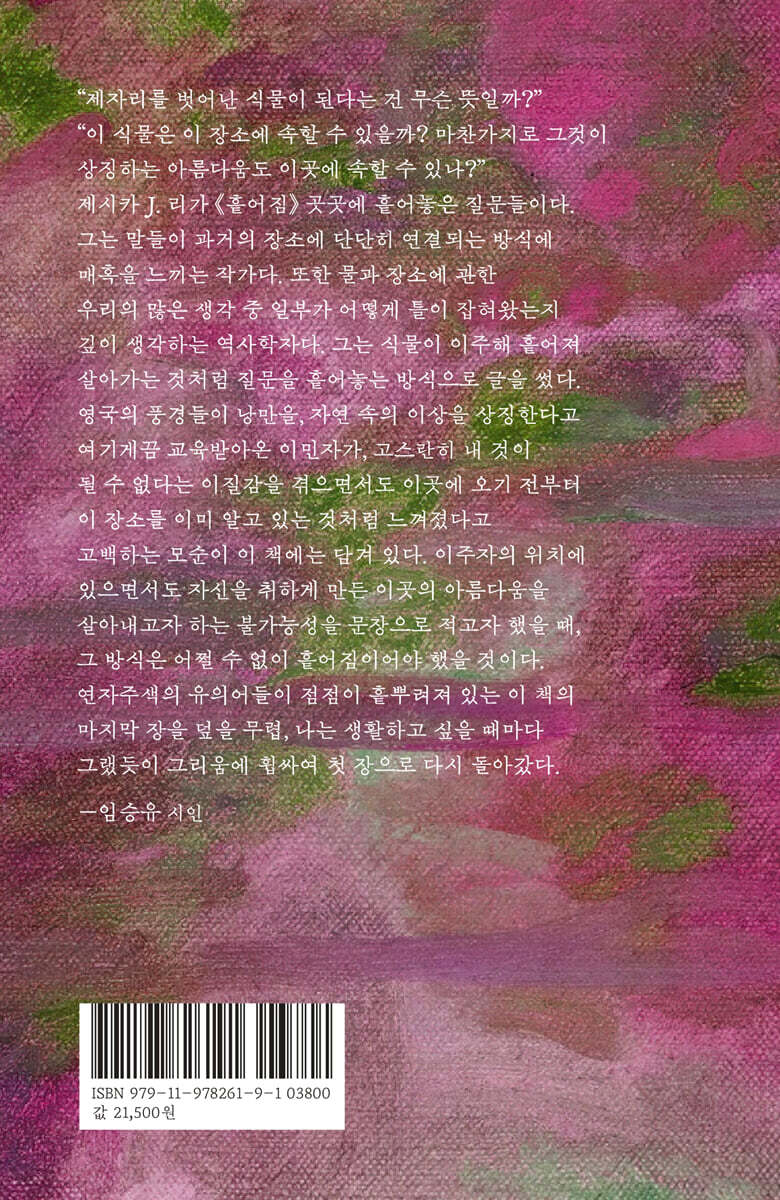 “제자리를 벗어난 식물이 된다는 건 무슨 뜻일까?”
“이 식물은 이 장소에 속할 수 있을까? 마찬가지로 그것이
상징하는 아름다움도 이곳에 속할 수 있나?”
제시카 J. 리가 《흩어짐》 곳곳에 흩어놓은 질문들이다.
그는 말들이 과거의 장소에 단단히 연결되는 방식에
매혹을 느끼는 작가다. 또한 물과 장소에 관한
우리의 많은 생각 중 일부가 어떻게 틀이 잡혀왔는지
깊이 생각하는 역사학자다. 그는 식물이 이주해 흩어져
살아가는 것처럼 질문을 흩어놓는 방식으로 글을 썼다.
영국의 풍경들이 낭만을, 자연 속의 이상을 상징한다고
여기게끔 교육받아온 이민자가, 고스란히 내 것이
될 수 없다는 이질감을 겪으면서도 이곳에 오기 전부터
이 장소를 이미 알고 있는 것처럼 느껴졌다고
고백하는 모순이 이 책에는 담겨 있다. 이주자의 위치에
있으면서도 자신을 취하게 만든 이곳의 아름다움을
살아내고자 하는 불가능성을 문장으로 적고자 했을 때,
그 방식은 어쩔 수 없이 흩어짐이어야 했을 것이다.
연자주색의 유의어들이 점점이 흩뿌려져 있는 이 책의
마지막 장을 덮을 무렵, 나는 생활하고 싶을 때마다
그랬듯이 그리움에 휩싸여 첫 장으로 다시 돌아갔다.
—임승유 시인
ISBN 979-11-978261-9-1 03800
값 21,500원